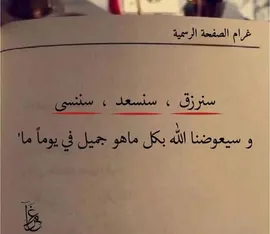 غرام الصفحة الرسمية
سنرزق ، سنسعد ، سننسى
و سيعوضنا الله بكل ماهو جميل في يوماً ما'